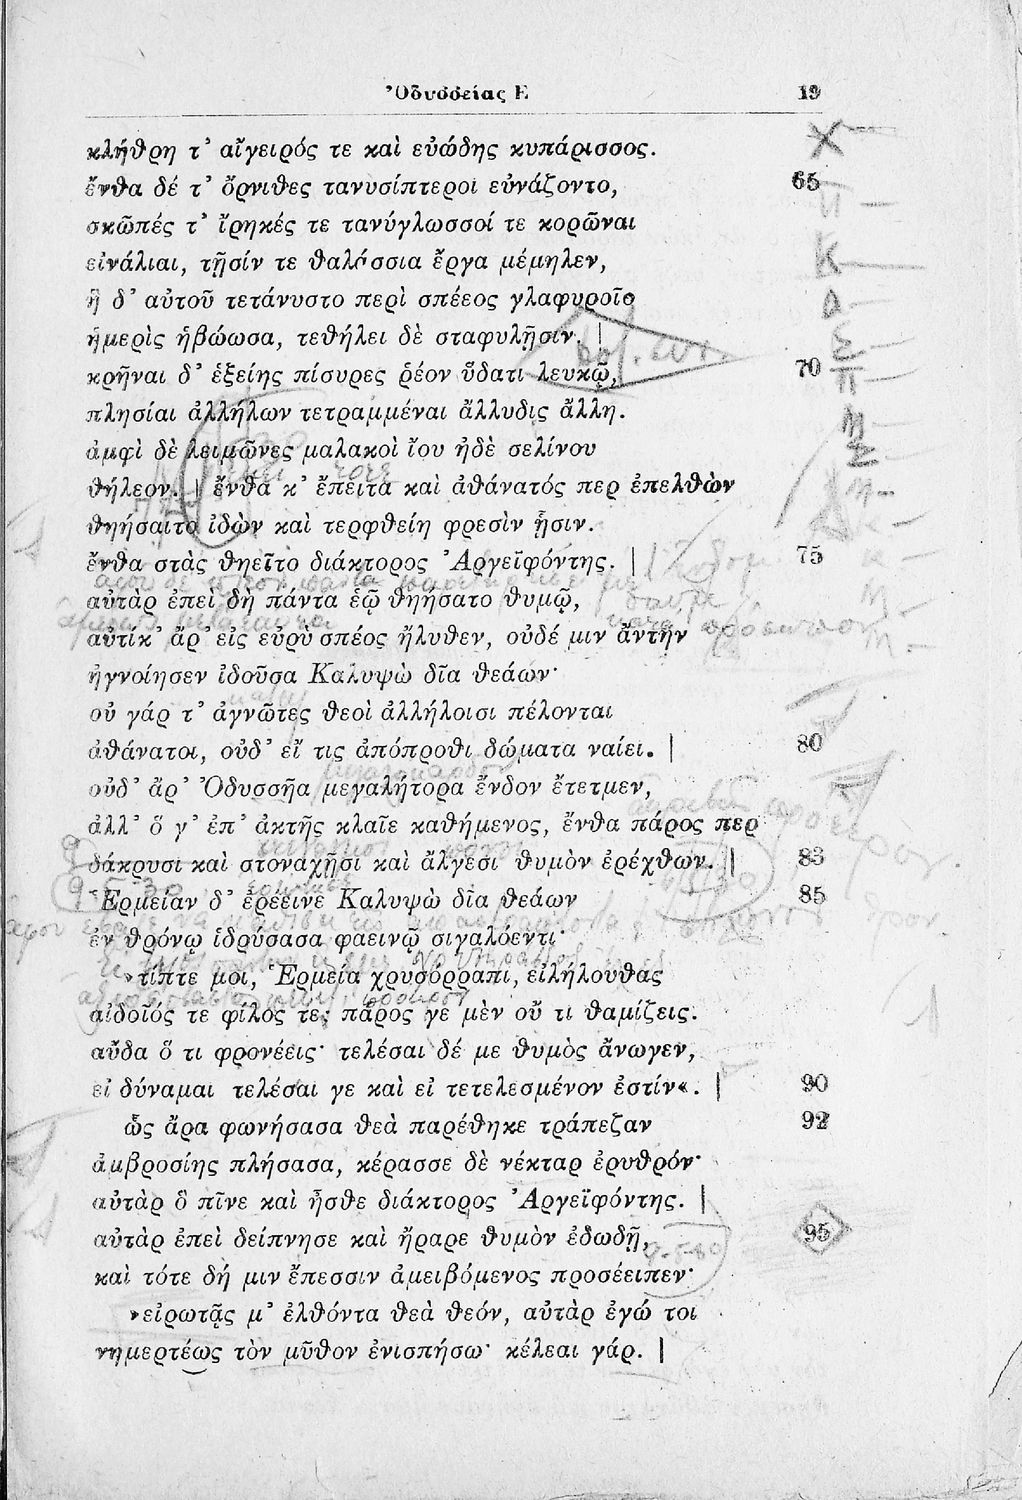 Ὀδυσσείας Ε 19
κλήθρη τ' αἴγειρός τε καὶ εὐώδης κυπάρισσος.
ἔνθα δέ τ' ὄρνιθες τανυσίπτεροι εὐνάζοντο, 65
σκῶπές τ' ἴρηκές τε τανύγλωσσοί τε κορῶναι
εἰνάλιαι, τῇσίν τε θαλάσσια ἔργα μέμηλεν,
ἣ δ' αὐτοῦ τετάνυστο περὶ σπέεος γλαφυροῖο
ἡμερὶς ἡβώωσα, τεθήλει δὲ σταφυλῇσιν. |
κρῆναι δ' ἑξείης πίσυρες ῥέον ὕδατι λευκῷ, 70
πλησίαι ἀλλήλων τετραμμέναι ἄλλυδις ἄλλη.
ἀμφὶ δὲ λειμῶνες μαλακοὶ ἴου ἠδὲ σελίνου
θήλεον. | ἔνθα κ' ἔπειτα καὶ ἀθάνατός περ ἐπελθὼν
θηήσαιτο ἰδὼν καὶ τερφθείη φρεσὶν ᾗσιν.
ἔνθα στὰς θηεῖτο διάκτορος Ἀργεϊφόντης. | 75
αὐτὰρ ἐπεὶ δὴ πάντα ἑῷ θηήσατο θυμῷ,
αὐτίκ' ἄρ' εἰς εὐρὺ σπέος ἤλυθεν, οὐδέ μιν ἄντην
ἠγνοίησεν ἰδοῦσα Καλυψὼ δῖα θεάων·
οὐ γάρ τ' ἀγνῶτες θεοὶ ἀλλήλοισι πέλονται
ἀθάνατοι, οὐδ' εἴ τις ἀπόπροθι δώματα ναίει. | 80
οὐδ' ἄρ' Ὀδυσσῆα μεγαλήτορα ἔνδον ἔτετμεν,
ἀλλ' ὅ γ' ἐπ' ἀκτῆς κλαῖε καθήμενος, ἔνθα πάρος περ
δάκρυσι καὶ στοναχῇσι καὶ ἄλγεσι θυμὸν ἐρέχθων. | 83
Ἑρμείαν δ' ἐρέεινε Καλυψὼ δῖα θεάων 85
ἐν θρόνῳ ἱδρύσασα φαεινῷ σιγαλόεντι·
»τίπτε μοι, Ἑρμεία χρυσόρραπι, εἰλήλουθας
αἰδοῖός τε φίλος τε; πάρος γε μὲν οὔ τι θαμίζεις.
αὔδα ὅ τι φρονέεις· τελέσαι δέ με θυμὸς ἄνωγεν,
εἰ δύναμαι τελέσαι γε καὶ εἰ τετελεσμένον ἐστίν«. | 90
ὣς ἄρα φωνήσασα θεὰ παρέθηκε τράπεζαν 92
ἀμβροσίης πλήσασα, κέρασσε δὲ νέκταρ ἐρυθρόν·
αὐτὰρ ὃ πῖνε καὶ ἦσθε διάκτορος Ἀργεϊφόντης. |
αὐτὰρ ἐπεὶ δείπνησε καὶ ἤραρε θυμὸν ἐδωδῇ, 95
καὶ τότε δή μιν ἔπεσσιν ἀμειβόμενος προσέειπεν·
»εἰρωτᾷς μ' ἐλθόντα θεὰ θεόν, αὐτὰρ ἐγώ τοι
νημερτέως τὸν μῦθον ἐνισπήσω· κέλεαι γάρ. |